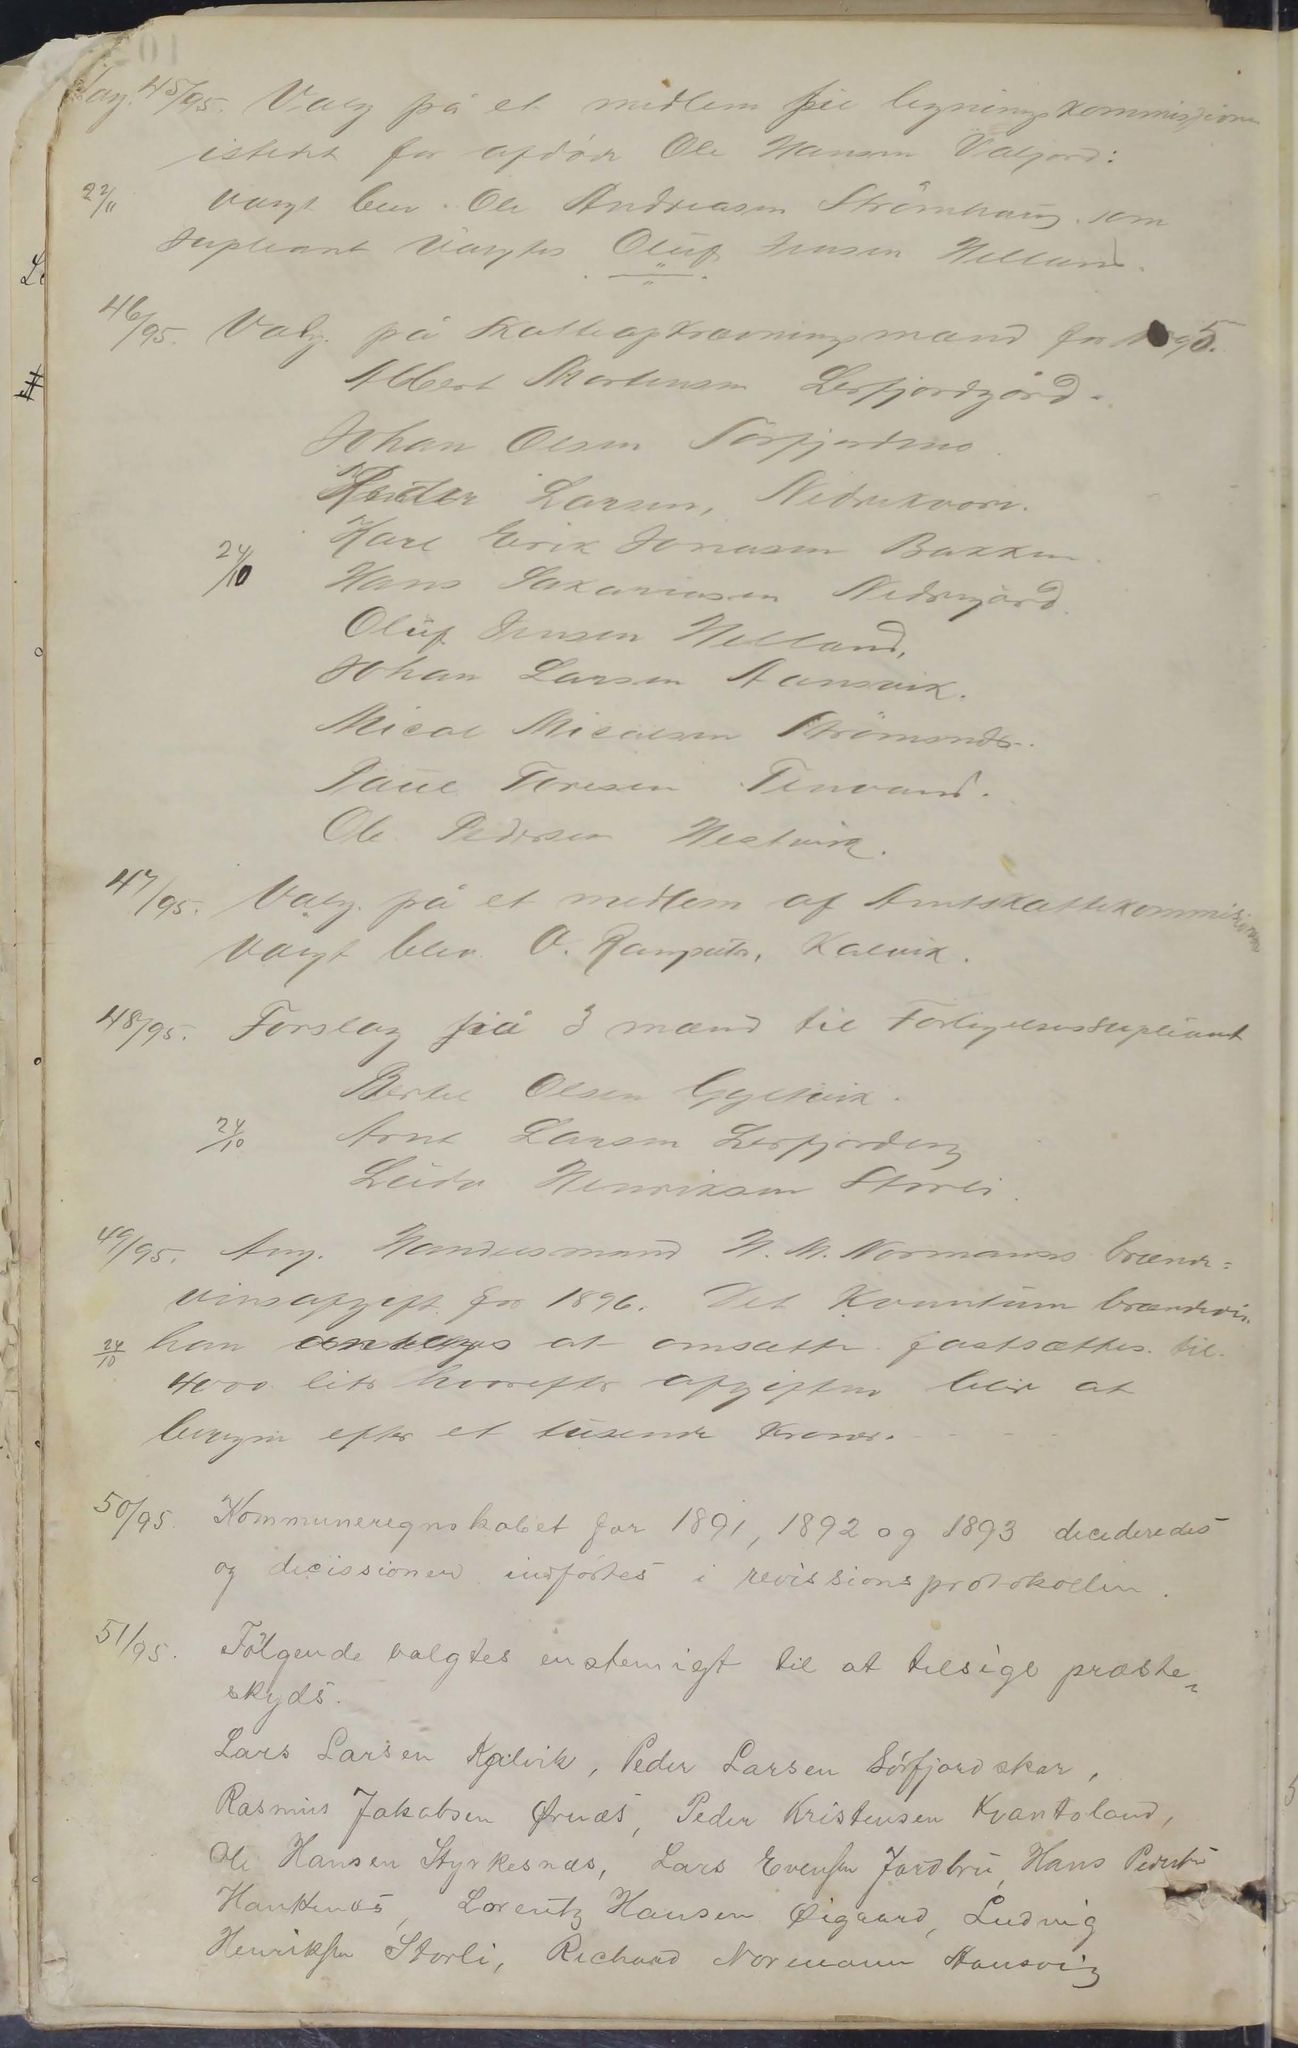 Sag. 45/95. Valg på et medlem til ligningskommissionen
istedet for afdøde Ole Hansen Valjord:
22/11 Valgt blev Ole Andreasen Strömhaug som
supleant valgtes Oluf Jensen Helland.
46/95. Valg på Skatteopkrævningsmænd for 1895.
Albert Mortensen Lerfjordgård.
Johan Olsen Sörfjordmo.
Peder Larsen, Nedrekvarv.
Karl Erik Jonasen Bakken
24/10 Hans Zakariasen Nedregård.
Oluf Jensen Helland,
Johan Larsen Aansvik.
Mical Micalsen Strömsnes.
Paul Toresen Tenvand.
Ole Pedersen Hestvik.
47/95. Valg på et medlem af Amtskattekommissionen
Valgt blev O. Kalvik.
48/95. Forslag på 3 mænd til Forligelsessupleant
Bertel Olsen Gyltvik.
24/10 Arnt Larsen Lerfjordeng
Ludv Henriksen Storli.
49/95. Ang. Handelsmand H. M. Normanns brænde=
vinsafgift for 1896. Det Kvantum brændevin
24/10 han antages at omsætte fastsættes til
4000 liter hvorefter afgiften blir at
beregne efter et tusende Kroner.
50/95. Kommuneregnskabet for 1891, 1892 og 1893 decideredes
og decissionen indførtes i revissionsprotokollen.
51/95. Følgende valgtes enstemigt til at tilsige præste=
skyds.
Lars Larsen Kjelvik, Peder Larsen Sörfjordskar,
Rasmus Jakobsen Ørnæs, Peder Kristensen Kvantoland,
Ole Hansen Styrkesnæs, Lars Evensen Jordbru, Hans Pedersen
Lorentz Hansen Øigaard, Ludvig
Henriksen Storli, Richard Normann Aansvig